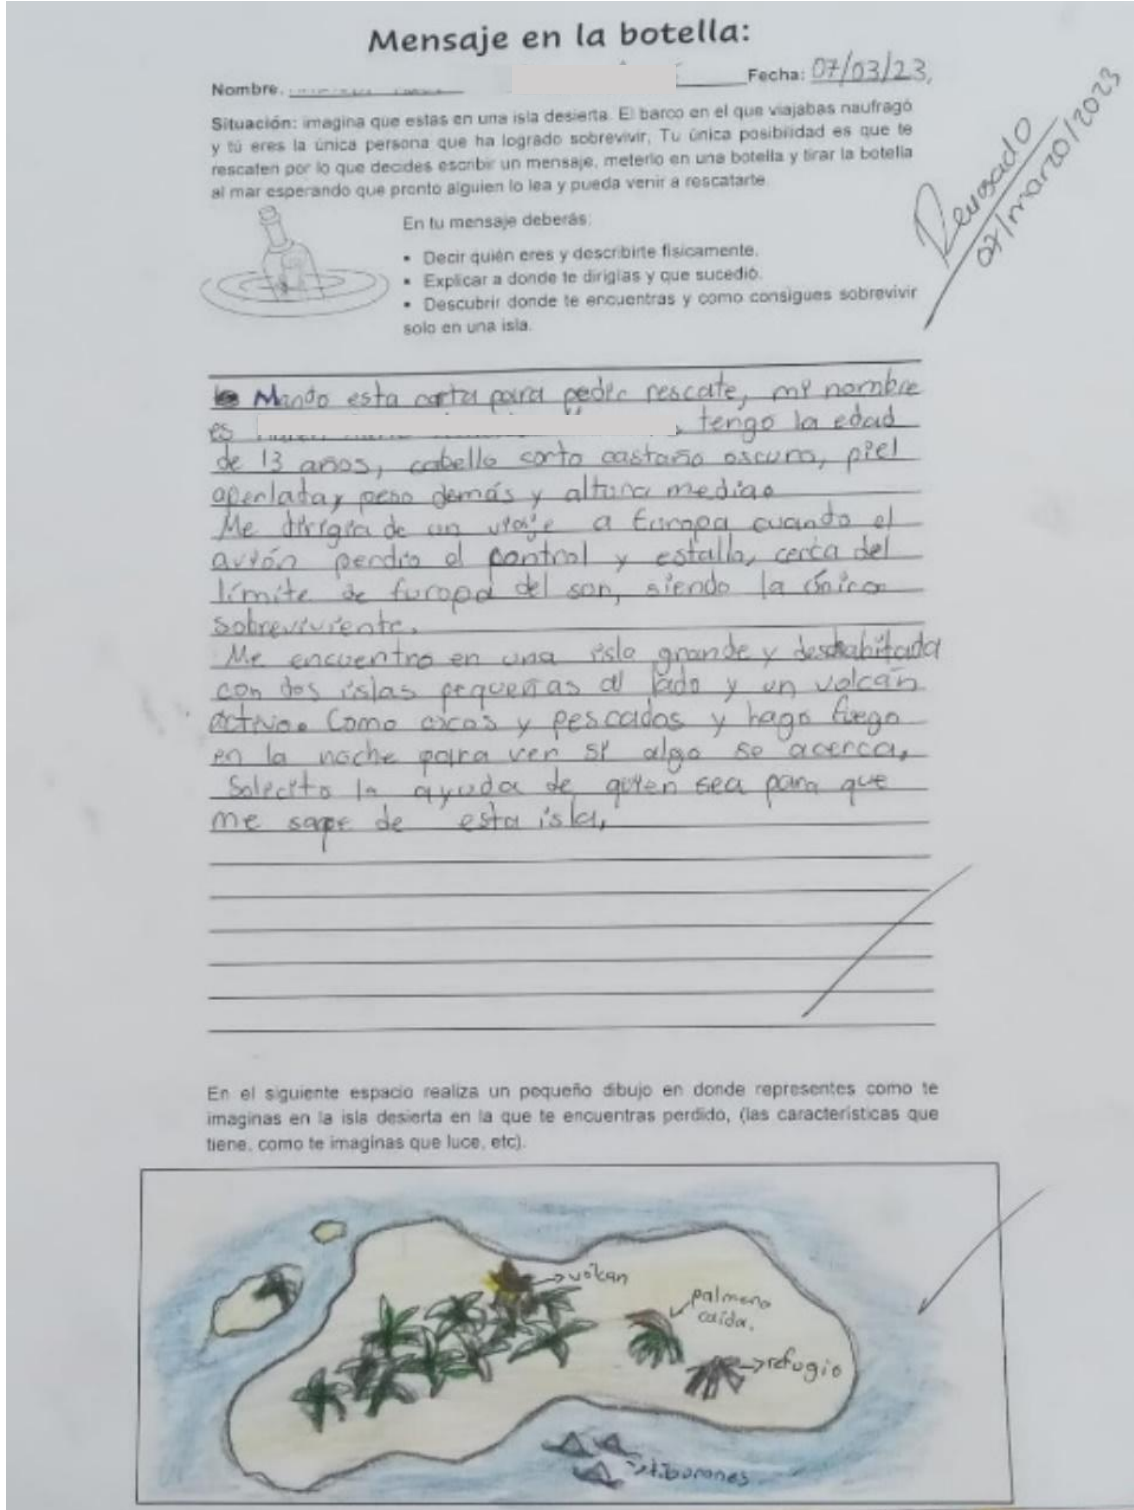 Mensaje en la botella:
Nombre. Fecha: 07/03/23,
Situación: imagina que estas en una isla desierta. El barco en el que viajabas naufragó
y tú eres la única persona que ha logrado sobrevivir, Tu única posibilidad es que te
rescaten por lo que decides escribir un mensaje, meterlo en una botella y tirar la botella
al mar esperando que pronto alguien lo lea y pueda venir a rescatarte.
Revisado
07/marzo/2023
En tu mensaje deberás:
• Decir quién eres y describirte físicamente.
• Explicar a donde te dirigías y que sucedió.
• Descubrir donde te encuentras y como consigues sobrevivir
solo en una isla.
Mando esta carta para pedir rescate, mi nombre
es , tengo la edad
de 13 años, cabello corto castaño oscuro, piel
aperlata, peso demás y altura media.
Me dirigía de un viaje a Europa cuando el
avión perdio el control y estallo, cerca del
límite de Europa del sur, siendo la única
sobreviviente.
Me encuentro en una isla grande y deshabitada
con dos islas pequeñas al lado y un volcán
activo. Como cocos y pescados y hago fuego
en la noche para ver si algo se acerca,
Solecito la ayuda de quien sea para que
me saque de esta isla,
En el siguiente espacio realiza un pequeño dibujo en donde representes como te
imaginas en la isla desierta en la que te encuentras perdido, (las características que
tiene, como te imaginas que luce, etc).
volcan
palmera
caída.
refugio
tiburones